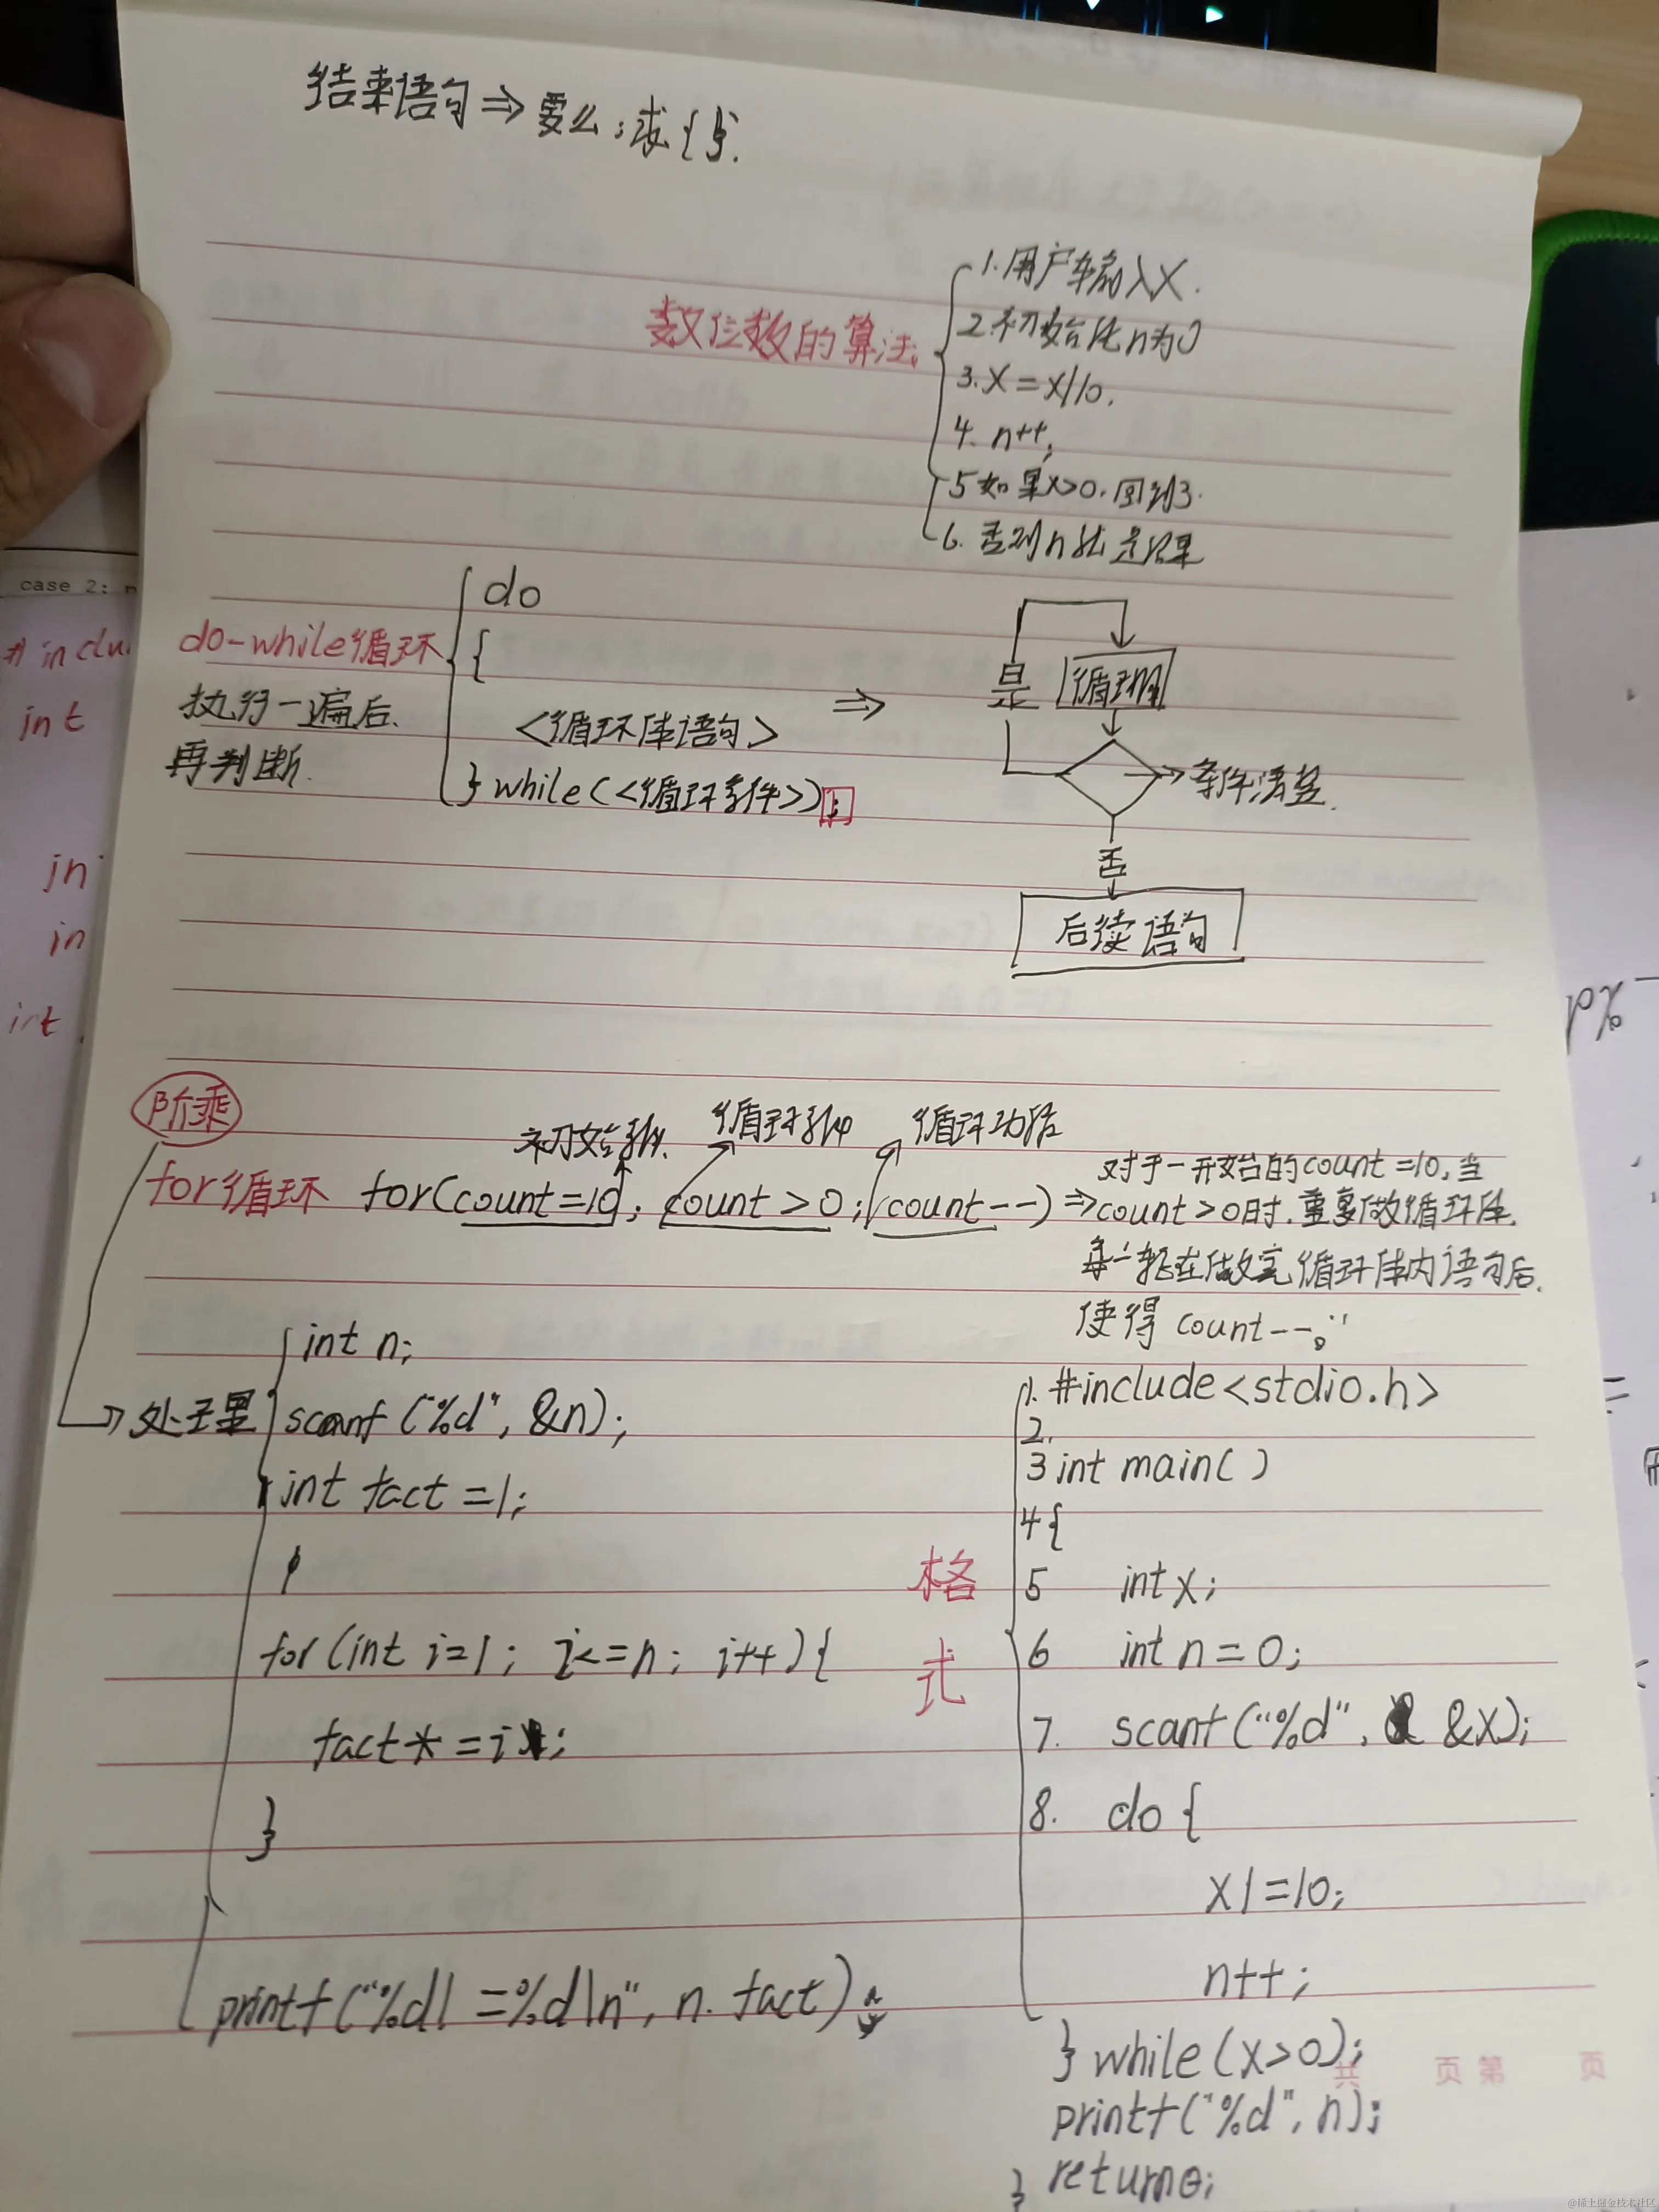 结束语句⇒要么;或{ }.
数位数的算法
1.用户输入x.
2.初始化n为0
3.x=x/10.
4. n++;
5如果x>0.回到3.
6.否则n就是结果
do-while循环
执行一遍后.
再判断.
do
{
<循环体语句>
} while(<循环条件>);
⇒
循环体
是
条件满足.
否
后续语句
阶乘
初始条件. 循环条件 循环动作
for循环 for(count=10; count>0; count--)⇒
对于一开始的count=10,当
count>0时.重复做循环体.
每一轮在做完循环体内语句后.
使得 count--。"
处理
int n;
scanf("%d", &n);
int fact=1;
for(int i=1; i<=n; i++){
fact*=i;
}
printf("%d! =%d\n", n. fact);
格式
1. #include<stdio.h>
2.
3 int main( )
4 {
5 int x;
6 int n=0;
7. scanf("%d", &x);
8. do {
x/=10;
n++;
} while(x>0);
printf("%d", n);
} return 0;
共 页 第 页
case 2: n
# inclu
int
in
in
int
%d
@稀土掘金技术社区